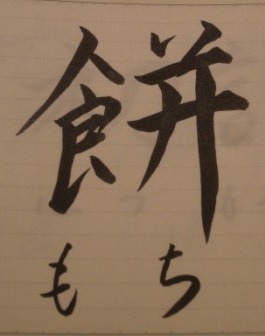 餅
もち